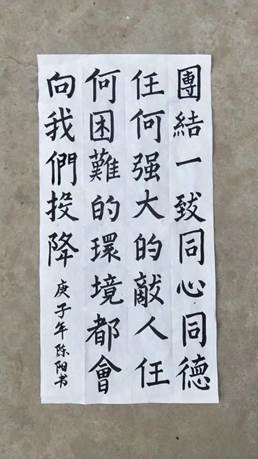 團結一致同心同德
任何强大的敵人任
何困難的環境都會
向我們投降
庚子年陈阳书